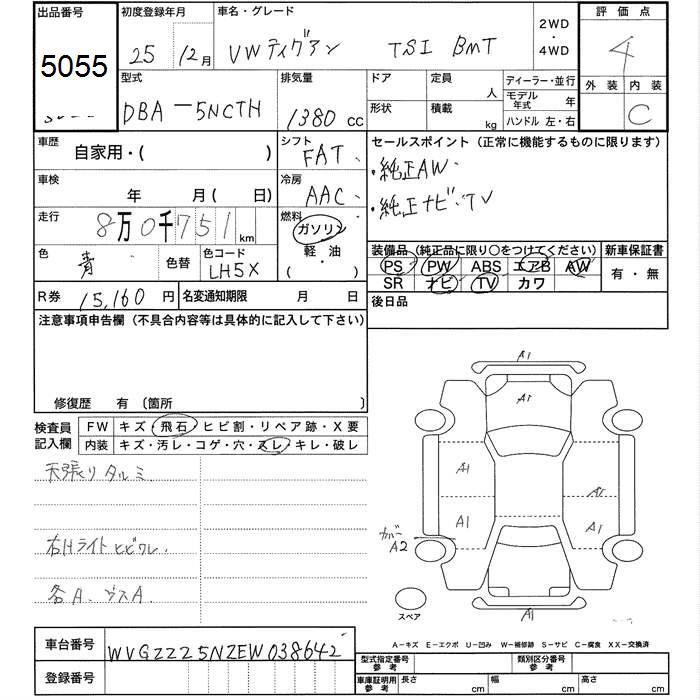 出品番号 初度登録年月 車名・グレード 2WD ・ 4WD 評価点
5055 25 12月 VWティグアン TSI BMT 4
型式 排気量 ドア 定員 人 ディーラー・並行 外装 内装
DBA-5NCTH 1380cc 形状 積載 kg モデル年式 年 C
ハンドル 左・右
車歴 自家用・( ) シフト FAT セールスポイント(正常に機能するものに限ります)
・純正AW
車検 年 月(日) 冷房 AAC ・純正ナビ・TV
走行 8万0千751km 燃料 ガソリン
軽・油
・( )
色 青 色替 色コード LH5X 装備品(純正品に限り○をつけてください) 新車保証書
PS PW ABS エアB AW 有・無
SR ナビ TV カワ
R券 15,160円 名変通知期限 月 日 後日品
注意事項申告欄(不具合内容等は具体的に記入して下さい)
修復歴 有 〔箇所 〕
検査員記入欄 FW キズ・飛石・ヒビ割・リペア跡・X要
内装 キズ・汚レ・コゲ・穴・スレ・キレ・破レ
天張りタルミ
右Hライトヒビワレ
各A、
A1
A1
A1
A1
A1
カバー A2
A1
スペア
A-キズ E-エクボ U-凹み W-補修跡 S-サビ C-腐食 XX-交換済
車台番号 WVGZZZ5NZEW038642
型式指定番号 参考 類別区分番号 参考
登録番号
車庫証明用 参考 長さ cm 幅 cm 高さ cm